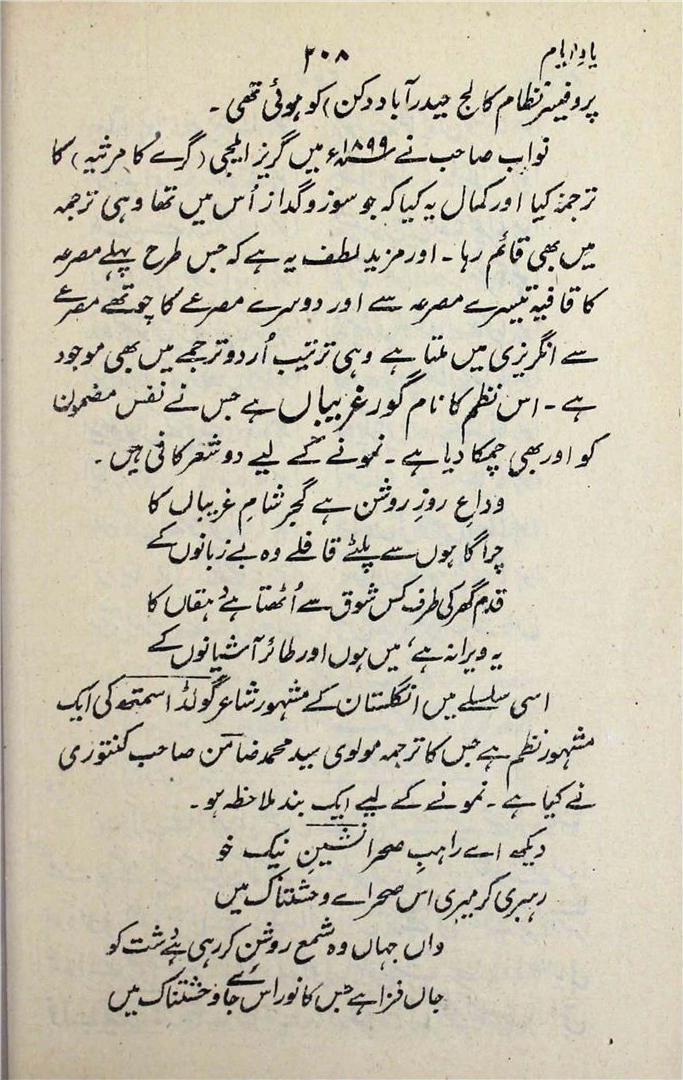 یادِ ایام
۲۰۸
پروفیسر نظام کالج حیدرآباد دکن) کو ہوئی تھی ۔
نواب صاحب نے ۱۸۹۹ء میں گریز ایلیجی (گرے کا مرثیہ) کا
ترجمہ کیا اور کمال یہ کیا کہ جو سوز و گداز اُس میں تھا وہی ترجمہ
میں بھی قائم رہا ۔ اور مزید لطف یہ ہے کہ جس طرح پہلے مصرعہ
کا قافیہ تیسرے مصرعہ سے اور دوسرے مصرعے کا چوتھے مصرعے
سے انگریزی میں ملتا ہے وہی ترتیب اُردو ترجمے میں بھی موجود
ہے ۔ اس نظم کا نام گورِ غریباں ہے جس نے نفس مضمون
کو اور بھی چمکا دیا ہے ۔ نمونے کے لیے دو شعر کافی ہیں ۔
وداعِ روزِ روشن ہے گجر شامِ غریباں کا
چراگاہوں سے پلٹے قافلے وہ بے زبانوں کے
قدم گھر کی طرف کس شوق سے اُٹھتا ہے دُہقاں کا
یہ ویرانہ ہے، میں ہوں اور طائر آشیانوں کے
اسی سلسلے میں انگلستان کے مشہور شاعر گولڈ اسمتھ کی ایک
مشہور نظم ہے جس کا ترجمہ مولوی سید محمد ضامن صاحب کنتوری
نے کیا ہے ۔ نمونے کے لیے ایک بند ملاحظہ ہو ۔
دیکھ اے راہبِ صحرا نشینِ نیک خو
رہبری کر میری اس صحراے وحشتناک میں
واں جہاں وہ شمع روشن کر رہی ہے دُشت کو
جاں فزا ہے جس کا نور اس جاے وحشتناک میں